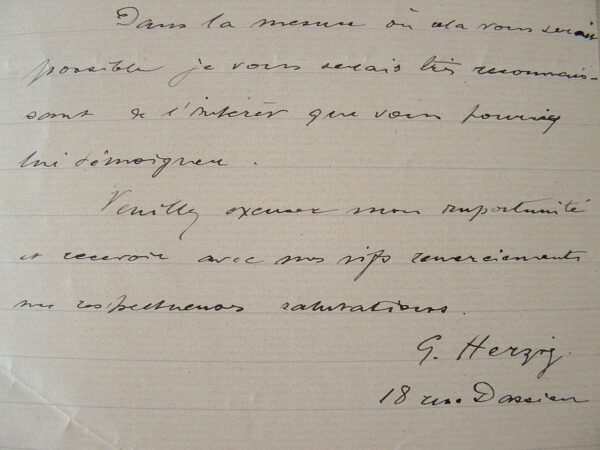 Dans la mesure où cela vous serait
possible je vous serais très reconnais-
sant de l'intérêt que vous pourriez
lui témoigner.
Veuillez excuser mon importunité
et recevoir avec mes vifs remerciements
mes respectueuses salutations.
G. Herzig.
18 rue